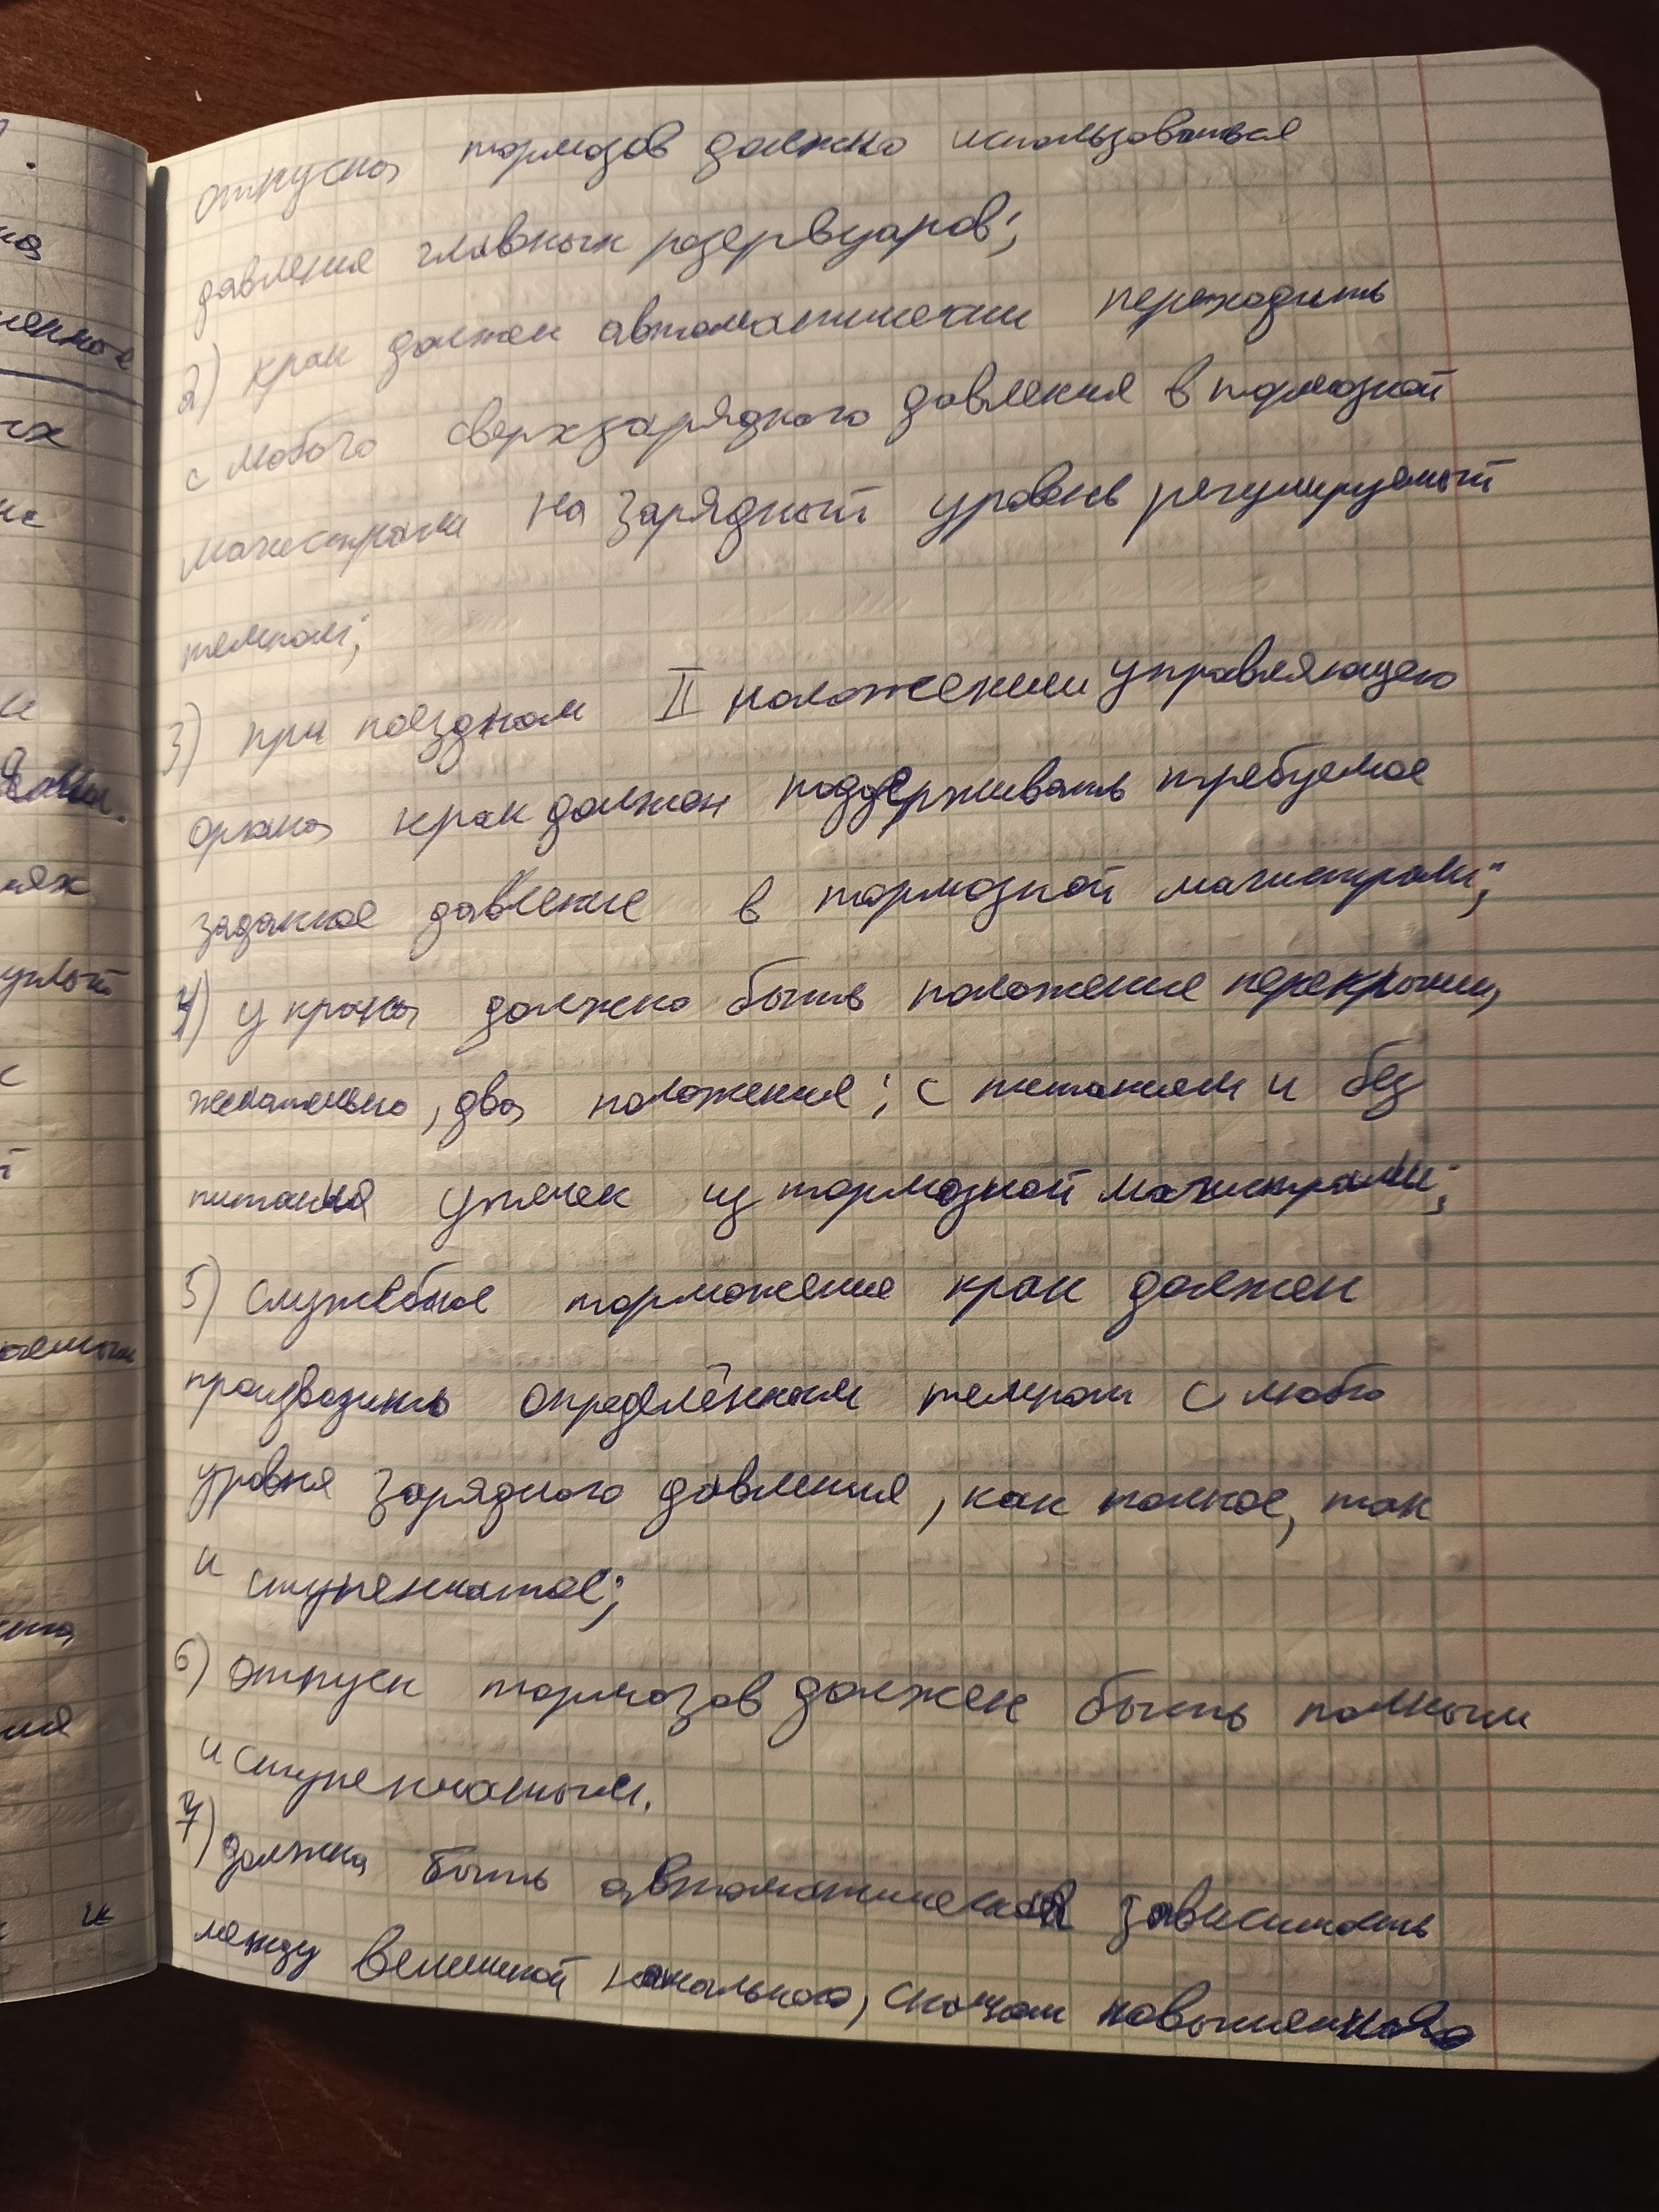 отпуска тормозов должно использоваться
давление главных резервуаров;
2) кран должен автоматически переходить
с любого сверхзарядного давления в тормозной
магистрали на зарядный уровень регулируемый
темпом;
3) при поездном II положении управляющего
органа кран должен поддерживать требуемое
заданное давление в тормозной магистрали;
4) у крана должно быть положение перекрыши,
желательно, два положения; с питанием и без
питания утечек из тормозной магистрали;
5) служебное торможение кран должен
производить определённым темпом с любо
уровня зарядного давления, как полное, так
и ступенчатое;
6) отпуск тормозов должен быть полным
и ступенчатым.
7) должна быть автоматическая зависимость
между величиной начального, скачком повышенного